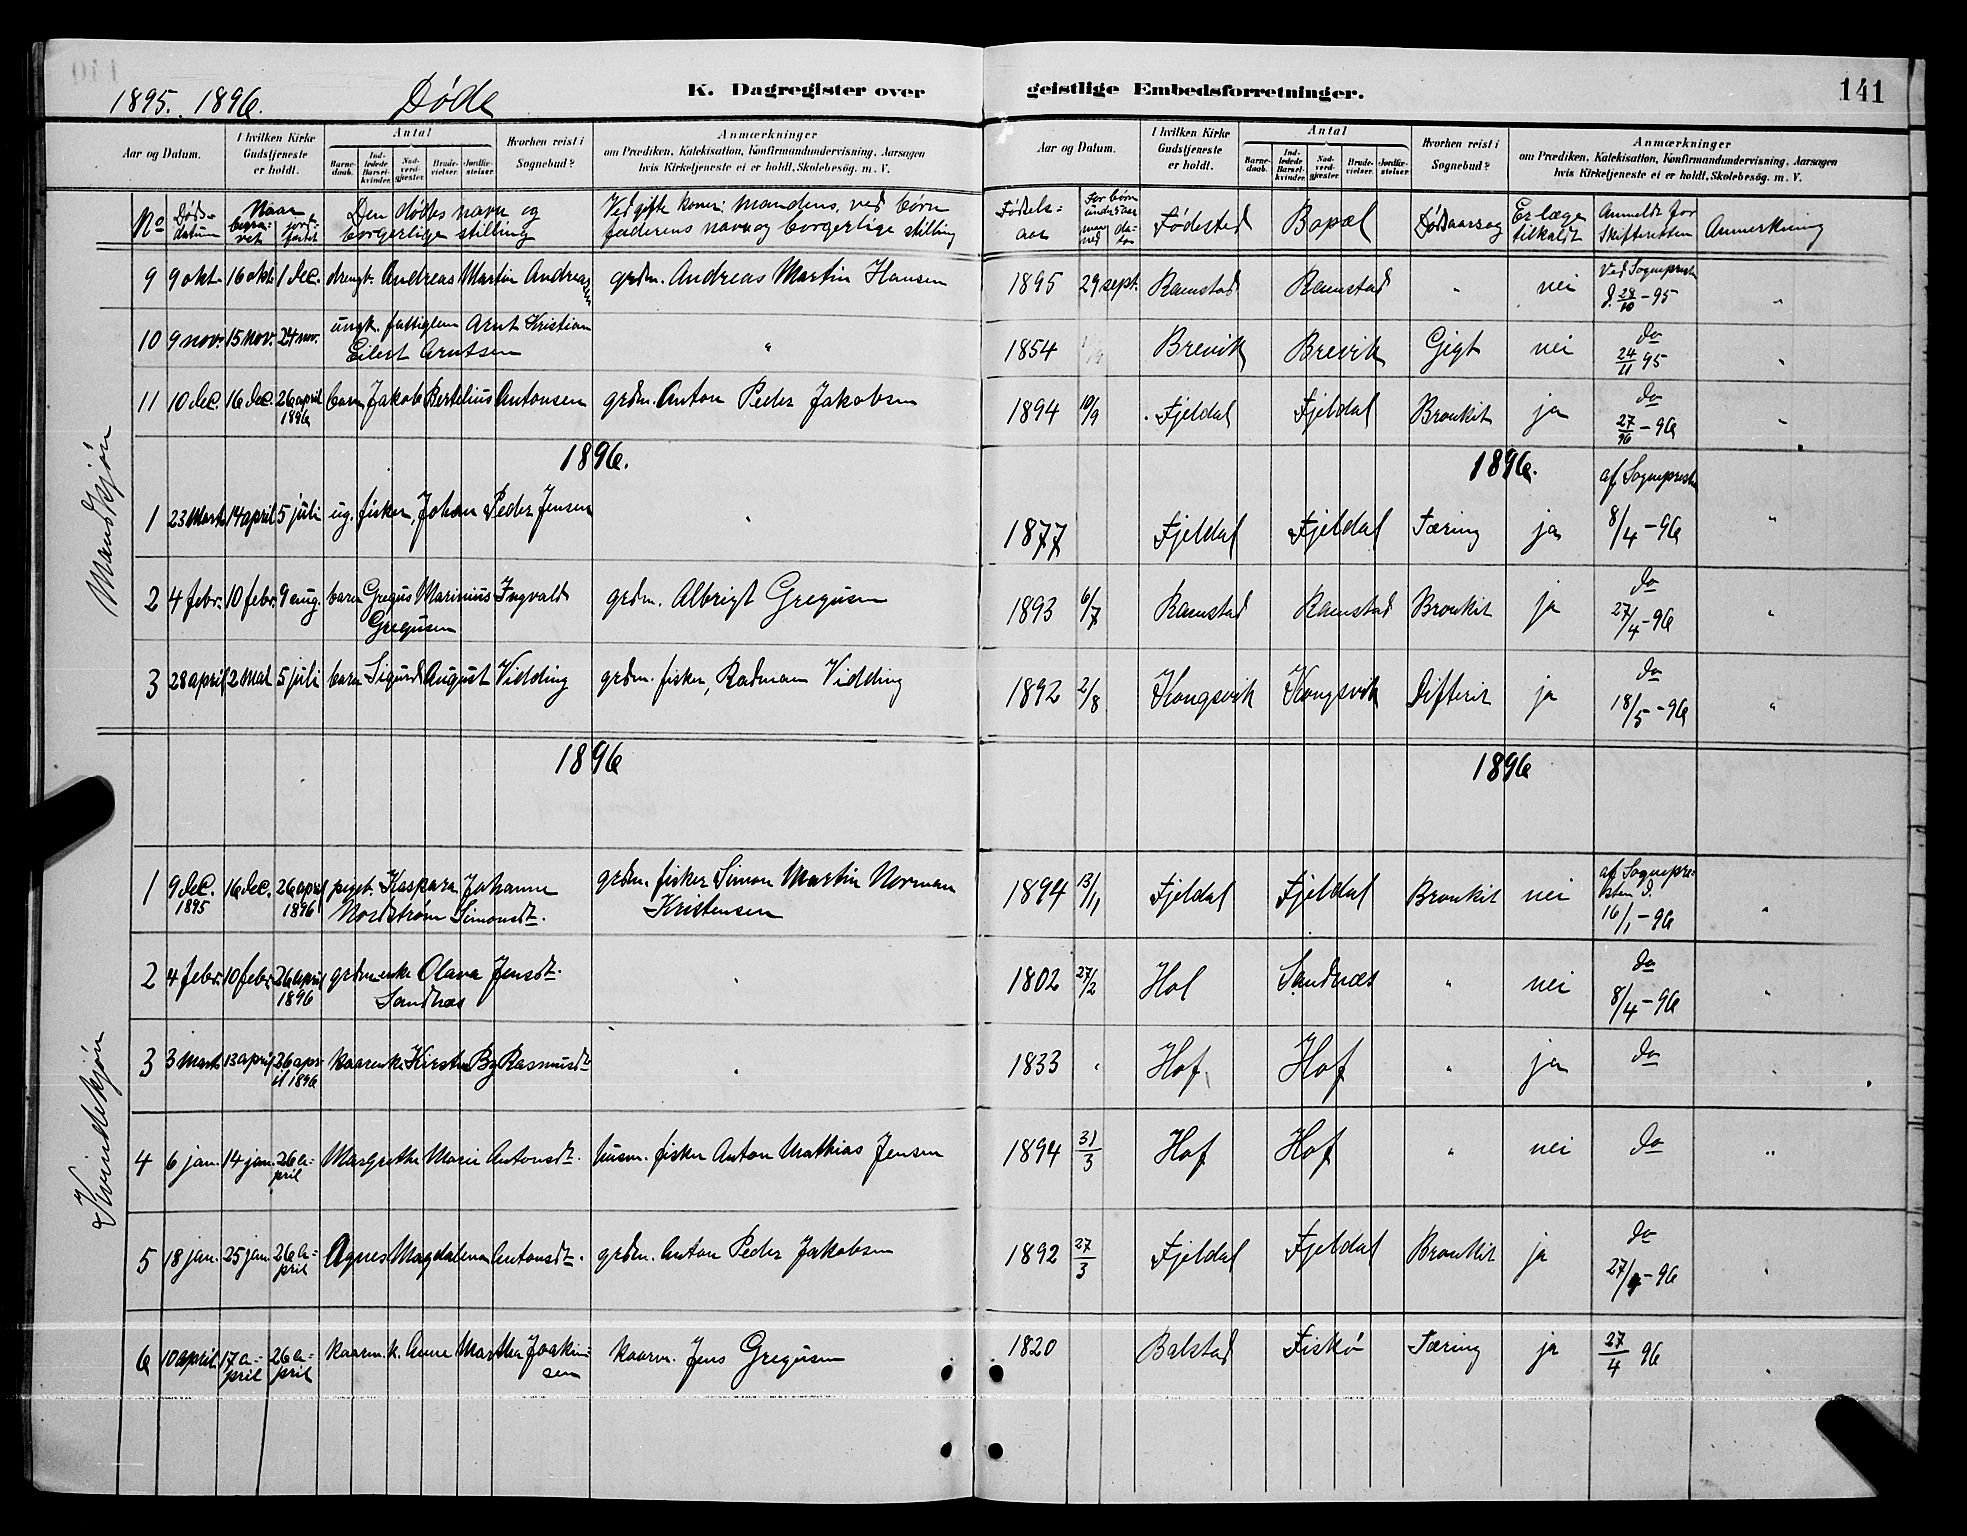 1895. 1896. Døde K. Dagregister over geistlige Embedsforretninger. 141
Aar og Datum. I hvilken Kirke Gudstjeneste er holdt. Antal Barnedaab. Indledede Barselkvinder. Nadverdgjester. Brudevielser. Jordfæstelser. Hvorhen reist i Sognebud? Anmærkninger om Prædiken, Katekisation, Konfirmandundervisning, Aarsagen hvis Kirketjeneste ei er holdt, Skolebesøg. m. V.
Aar og Datum. I hvilken Kirke Gudstjeneste er holdt. Antal Barnedaab. Indledede Barselkvinder. Nadverdgjester. Brudevielser. Jordfæstelser. Hvorhen reist i Sognebud? Anmærkninger om Prædiken, Katekisation, Konfirmandundervisning, Aarsagen hvis Kirketjeneste ei er holdt, Skolebesøg. m. V.
No Døds-datum Naar begra-vet jord-fæstet Den dødes navn og borgerlige stilling Ved gifte koner: Mandens, ved børn faderens navn og borgerlige stilling
Fødsels-aar For børn under 2 aar maaned dato Fødested Bopæl Dødsaarsag Er læge tilkaldt Anmeldt for Skifteretten Anmerkning
Mandkjøn
9 9 okt. 16 okt. 1 dec. drengb. Andreas Martin Andreassen grdm. Andreas Martin Hansen 1895 29 sept. Ramstad Ramstad " nei Ved Sogneprest d. 28/10 - 95 "
10 9 nov. 15 nov. 24 nov. ungk. fattiglem Arnt Kristian Eilert Arntsen " 1854 Brevik Brevik Gigt nei do 24/11 95 "
11 10 dec. 16 dec. 26 april 1896 barn Jakob Bertelius Antonsen grdm. Anton Peder Jakobsen 1894 10/9 Fjeldal Fjeldal Bronkit ja do 27/96 - 96 "
1896. 1896.
1 23 Marts 14 april 5 juli ug. fisker, Johan Peder Jensen " 1877 Fjeldal Fjeldal Tæring ja af Sogneprest 8/4 - 96 "
2 4 febr. 10 febr. 9 aug. barn Gregus Marinius Ingvald Gregusen grdm. Albrigt Gregusen 1893 6/7 Ramstad Ramstad Bronkit ja do 27/4 - 96 "
3 28 april 2 Mai 5 juli barn Sigurd August Vidding grdm. fisker, Radman Vidding 1892 2/8 Kongsvik Kongsvik Difterit ja do 18/5 - 96 "
1896 1896
Kvindekjøn
1 9 dec. 1895 16 dec. 26 april 1896 pigeb. Kaspara Johanne Nordstrøm Simonsdt. grdm. fisker Simon Martin Norman Kristensen 1894 13/11 Fjeldal Fjeldal Bronkit nei af Sognepresten d. 16/1 - 96 "
2 4 febr. 10 febr. 26 april 1896 grdm enke Olava Jensdt. Sandnæs " 1802 27/2 Hol Sandnæs " nei do 8/4 - 96 "
3 3 Marts 13 april 26 april 1896 kaarenke Kirsten By Rasmusdt " 1833 " Hof Hof " ja do
4 6 jan. 14 jan. 26 a-pril Margrethe Marie Antonsdt. husm. fisker Anton Mathias Jensen 1894 31/3 Hof Hof " nei do "
5 18 jan. 25 jan. 26 a-pril Agnes Magdalena Antonsdt. grdm. Anton Peder Jakobsen 1892 27/3 Fjeldal Fjeldal Bronkit ja do 27/4 - 96 "
6 10 april 17 a-pril 26 a-pril kaarm. k. Anne Martha Joakimsen kaarm. Jens Gregusen 1820 Balstad Fiskø Tæring ja 27/4 96 "